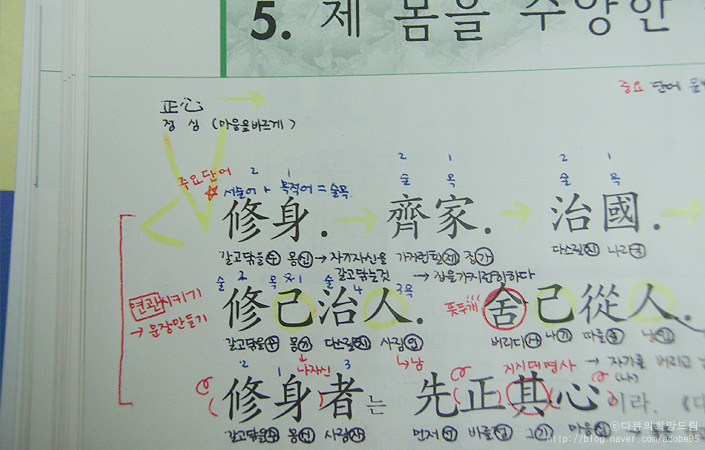 5. 제 몸을 수양한
중요 단어
正心
정 심 (마음을 바르게)
중요단어 2 1 2 1 2 1
☆ 서술어 + 목적어 = 술목 술 목 술 목
修身. → 齊家. → 治國. →
갈고닦을수 몸신 → 자기자신을 가지런할제 집가 다스릴치 나라국
갈고닦는것 → 집을가지런히하다
술 2 목 1 술 4 목
연관시키기
修己治人. 舍己從人.
→ 문장만들기
갈고닦을수 몸기 다스릴치 사람인 버리다사 나기 따를종 남인
나자신 →남 지시대명사 → 자기를 버리고
2 1 3 (나)
修身者는 先正其心이라.
갈고닦을수 몸신 사람자 먼저선 바를정 그기 마음심
©다뷰의희망드림
http://blog.naver.com/adobe95